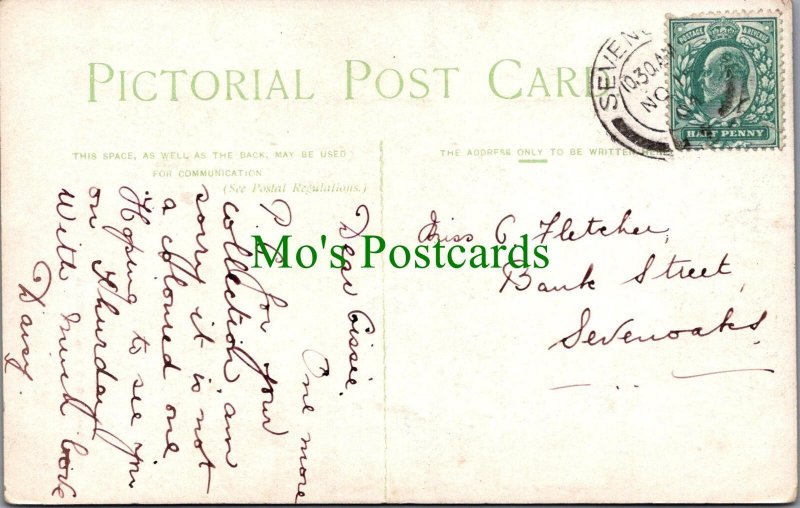 PICTORIAL POST CARD
THIS SPACE, AS WELL AS THE BACK, MAY BE USED
FOR COMMUNICATION
(See Postal Regulations.)
THE ADDRESS ONLY TO BE WRITTEN HERE
SEVENO
10.30AM
NO
POSTAGE & REVENUE
HALF PENNY
Dear Cissie.
One more
P.P.C. for your
collection am
sorry it is not
a coloured one
Hoping to see you
on Thursday
With much love
Daisy.
Miss C Fletcher,
Bank Street,
Sevenoaks
Mo's Postcards